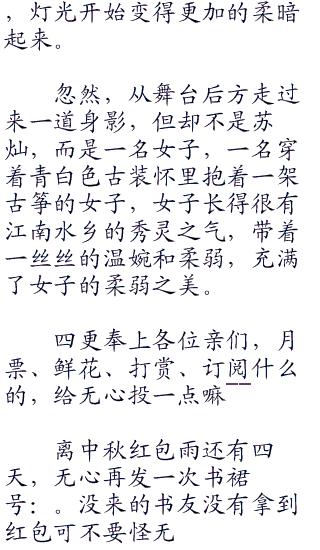 ，灯光开始变得更加的柔暗
起来。
忽然，从舞台后方走过
来一道身影，但却不是苏
灿，而是一名女子，一名穿
着青白色古装怀里抱着一架
古筝的女子，女子长得很有
江南水乡的秀灵之气，带着
一丝丝的温婉和柔弱，充满
了女子的柔弱之美。
四更奉上各位亲们，月
票、鲜花、打赏、订阅什么
的，给无心投一点嘛￣￣
离中秋红包雨还有四
天，无心再发一次书裙
号：。没来的书友没有拿到
红包可不要怪无